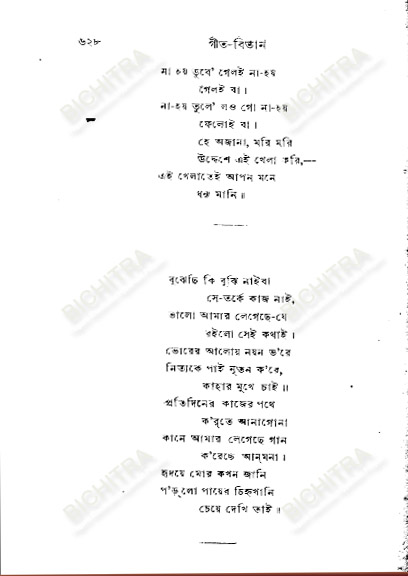 ৬২৮ গীত-বিতান
না হয় ডুবে' গেলই না-হয়
গেলই বা।
না-হয় তুলে' লও গো না-হয়
ফেলোই বা।
হে অজানা, মরি মরি
উদ্দেশে এই খেলা করি,—
এই খেলাতেই আপন মনে
ধন্য মানি॥
বুঝেছি কি বুঝি নাইবা
সে-তর্কে কাজ নাই,
ভালো আমার লেগেছে-যে
রইলো সেই কথাই।
ভোরের আলোয় নয়ন ভ'রে
নিত্যকে পাই নূতন ক'রে,
কাহার মুখে চাই॥
প্রতিদিনের কাজের পথে
ক'র্‌তে আনাগোনা
কানে আমার লেগেছে গান
ক'রেছে আন্‌মনা।
হৃদয়ে মোর কখন জানি
প'ড়্‌লো পায়ের চিহ্নখানি
চেয়ে দেখি তাই॥
BICHITRA
BICHITRA
BICHITRA
BICHITRA
BICHITRA
BICHITRA